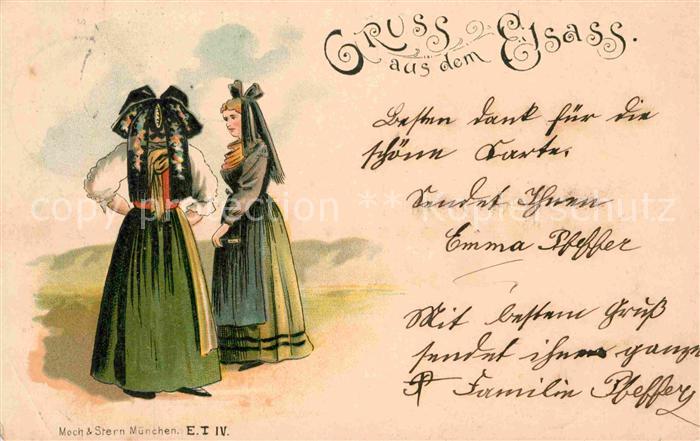 Gruss
aus dem Elsass.
Besten dank für die
schöne Karte.
Sendet Ihnen
Emma Pfeffer
Mit bestem Gruß
sendet ihnen ganze
Familie Pfeffer
copyright ** Kopierschutz
Moch & Stern München. E.T IV.